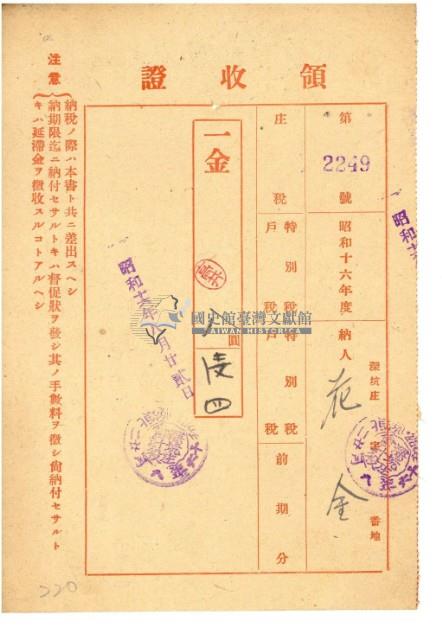 領收證
第 2249 號 昭和十六年度 納人 深坑庄 番地
花 金
庄稅 特別稅戶稅 特別稅戶稅 前期分
一金 圓
陵四
昭和十六年 月廿貳日
注意
納稅ノ際ハ本書ト共ニ差出スヘシ
納期限迄ニ納付セサルトキハ督促狀ヲ發シ其ノ手數料ヲ徵シ尙納付セサルト
キハ延滯金ヲ徵收スルコトアルヘシ
國史館臺灣文獻館
TAIWAN HISTORICA
220